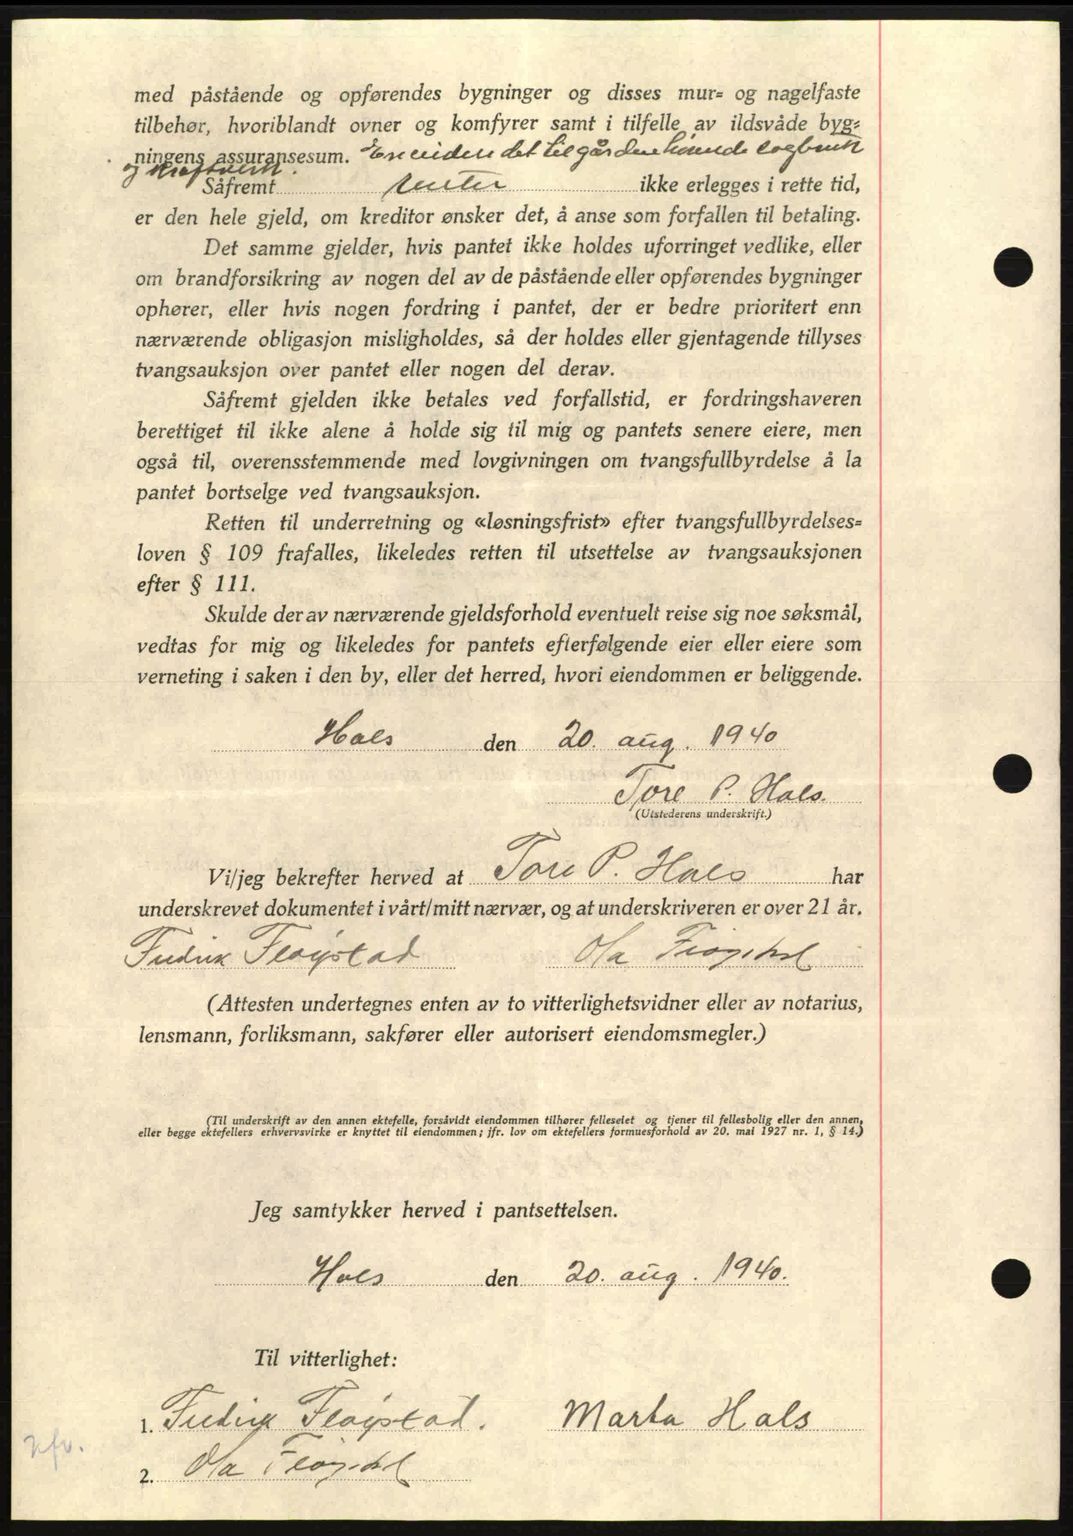 med påstående og opførendes bygninger og disses mur= og nagelfaste
tilbehør, hvoriblandt ovner og komfyrer samt i tilfelle av ildsvåde byg=
ningens assuransesum. Ennviden det til gården hørende sagbruk
og kraftverk.
Såfremt renter ikke erlegges i rette tid,
er den hele gjeld, om kreditor ønsker det, å anse som forfallen til betaling.
Det samme gjelder, hvis pantet ikke holdes uforringet vedlike, eller
om brandforsikring av nogen del av de påstående eller opførendes bygninger
ophører, eller hvis nogen fordring i pantet, der er bedre prioritert enn
nærværende obligasjon misligholdes, så der holdes eller gjentagende tillyses
tvangsauksjon over pantet eller nogen del derav.
Såfremt gjelden ikke betales ved forfallstid, er fordringshaveren
berettiget til ikke alene å holde sig til mig og pantets senere eiere, men
også til, overensstemmende med lovgivningen om tvangsfullbyrdelse å la
pantet bortselge ved tvangsauksjon.
Retten til underretning og «løsningsfrist» efter tvangsfullbyrdelses=
loven § 109 frafalles, likeledes retten til utsettelse av tvangsauksjonen
efter § 111.
Skulde der av nærværende gjeldsforhold eventuelt reise sig noe søksmål,
vedtas for mig og likeledes for pantets efterfølgende eier eller eiere som
verneting i saken i den by, eller det herred, hvori eiendommen er beliggende.
Hals den 20. aug. 1940
Tore P. Hals.
(Utstederens underskrift.)
Vi/jeg bekrefter herved at Tore P. Hals har
underskrevet dokumentet i vårt/mitt nærvær, og at underskriveren er over 21 år.
Fredrik Fløystad Ola
(Attesten undertegnes enten av to vitterlighetsvidner eller av notarius,
lensmann, forliksmann, sakfører eller autorisert eiendomsmegler.)
(Til underskrift av den annen ektefelle, forsåvidt eiendommen tilhører felleseiet og tjener til fellesbolig eller den annen,
eller begge ektefellers erhvervsvirke er knyttet til eiendommen; jfr. lov om ektefellers formuesforhold av 20. mai 1927 nr. 1, § 14.)
Jeg samtykker herved i pantsettelsen.
Hals den 20. aug. 1940.
Til vitterlighet:
1. Fredrik Fløystad. Marta Hals
2. Ola